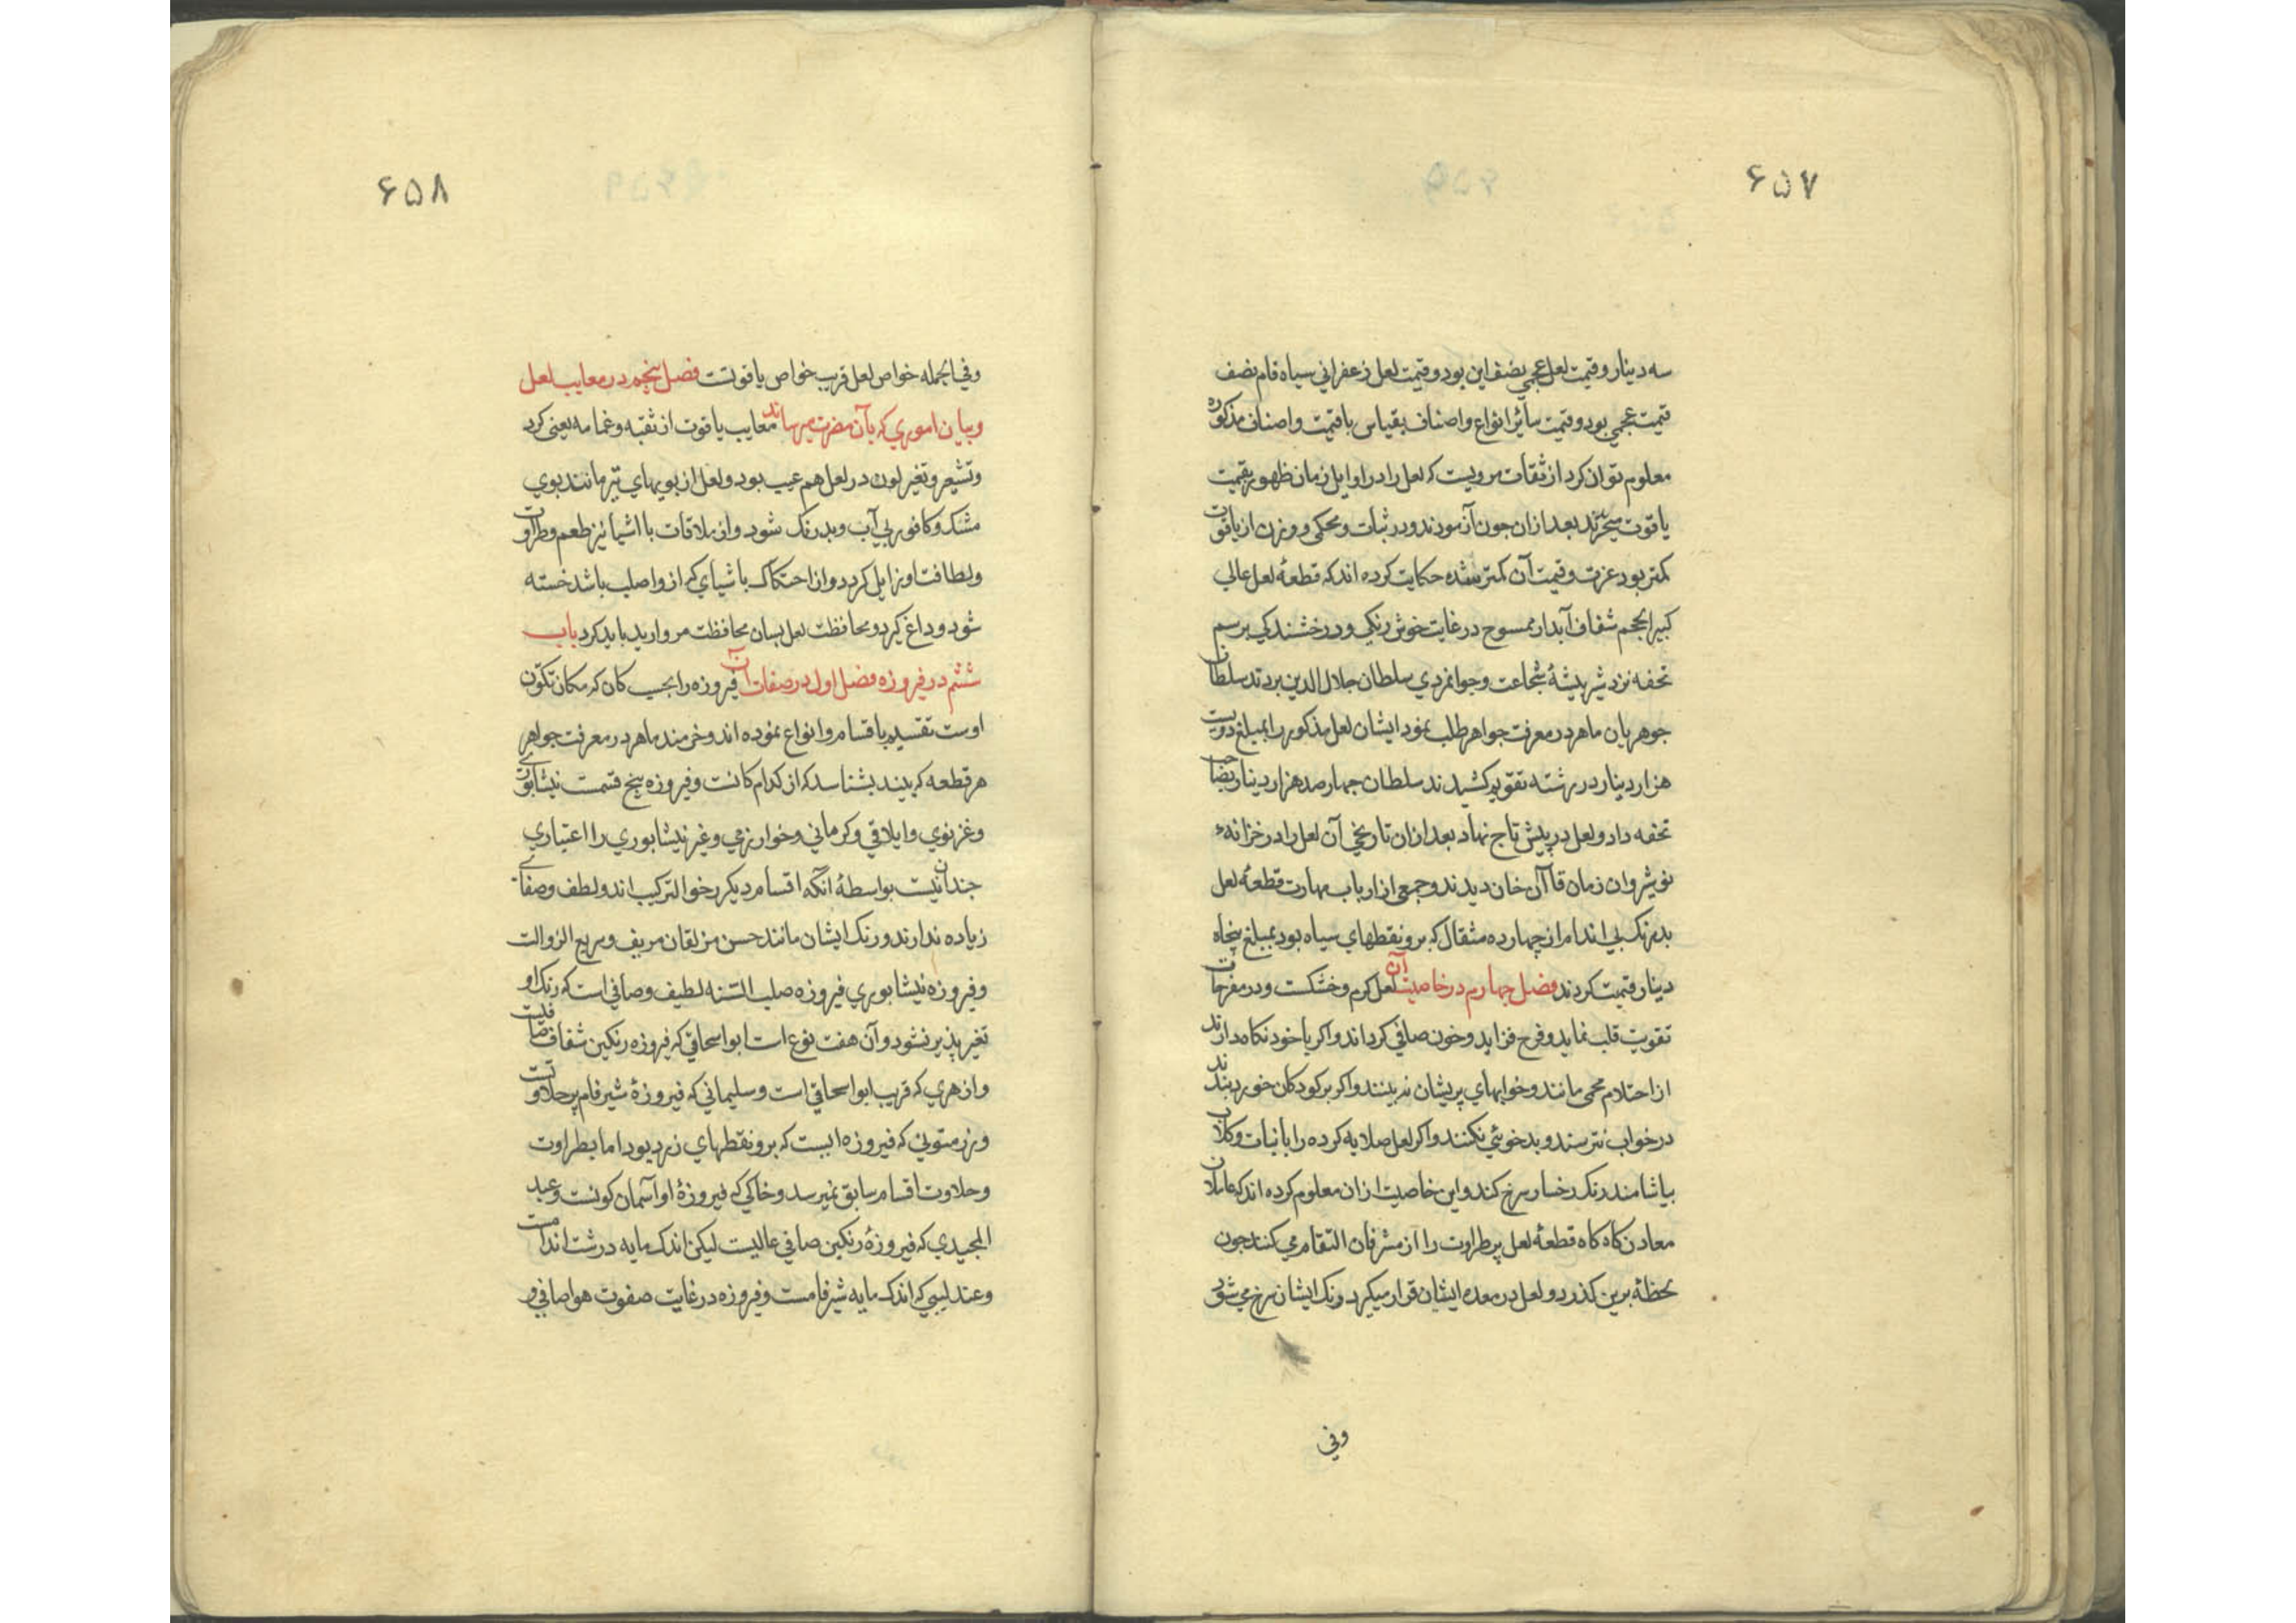 ۶۵۷
سه دینار و قیمت لعل عجمی نصف این بود و قیمت لعل زعفرانی سیاه فام نصف
قیمت عجمی بود و قیمت سائر انواع و اصناف بقیاس با قیمت و اصناف مذکوره
معلوم توان کرد از ثقات مرویست که لعل را در اوایل زمان ظهور بقیمت
یاقوت میخریدند بعد ازان جون آزمودند و در ثبات و محکی و وزن از یاقوت
کمتر بود عزت و قیمت آن کمتر شده حکایت کرده اند که قطعهٔ لعل عالی
کبیر الحجم شفاف آبدار ممسوح در غایت خوش رنکی و درخشندکی برسم
تحفه نزد شیر بیشهٔ شجاعت و جوانمردی سلطان جلال الدین بردند سلطان
جوهریان ماهر در معرفت جواهر طلب نمود ایشان لعل مذکور را بمبلغ دویست
هزار دینار در رشته تقویم کشیدند سلطان جهار صد هزار دینار بصاحب
تحفه داد و لعل در پیش تاج نهاد بعد ازان تاریخ آن لعل را در خزانهٔ
نوشیروان زمان قاآن خان دیدند و جمعی از ارباب مهارت قطعهٔ لعل
بدرنک بی اندام از چهارده مثقال که برو نقطهای سیاه بود بمبلغ پنجاه
دینار قیمت کردند فصل جهارم در خاصیت آن لعل کرم و خشکست و در مفرحات
تقویت قلب نماید و فرح فزاید و خون صافی کرداند و اکر با خود نکاه دارند
از احتلام محمی مانند و خوابهای پریشان نه بینند و اکر بر کودکان خورد بندند
در خواب نترسند و بدخوئی نکنند و اکر لعل صلایه کرده را با نبات و کلاب
بیاشامند رنک رخسار سرخ کند و این خاصیت ازان معلوم کرده اند که عاملان
معادن کاه کاه قطعهٔ لعل پر طراوت را از مشرفان التقام می کنند جون
لحظهٔ برین کذرد و لعل در معده ایشان قرار میکیرد رنک ایشان سرخ می شود
وفی
۶۵۸
وفی الجمله خواص لعل قریب خواص یاقوتست فصل پنجم در معایب لعل
و بیان اموری که بآن مضرت میرساند معایب یاقوت از ثقبه و غمامه یعنی کرد
و تشعیر و تغیر لون در لعل هم عیب بود و لعل از بویهای تیز مانند بوی
مشک و کافور بی آب و بدرنک شود و از ملاقات با اشیا نیز طعم و طراوت
و لطافت او زایل کردد و از احتکاک باشیای که ازو اصلب باشد خسته
شود و داغ کیرد و محافظت لعل بسان محافظت مروارید باید کرد باب
ششم در فیروزه فصل اول در صفات آن فیروزه را بحسب کان که مکان تکون
اوست تقسیم باقسام و انواع نموده اند و خردمند ماهر در معرفت جواهر
هر قطعه که بیند بشناسد که از کدام کانست و فیروزه پنج قسمت نیشابوری
و غزنوی و ایلاقی و کرمانی و خوارزمی و غیر نیشابوری را اعتباری
جندان نیست بواسطهٔ آنکه اقسام دیکر رخوا لترکیب اند و لطف و صفای
زیاده ندارند و رنک ایشان مانند حسن مزلقان مریف و سریع الزوالت
و فیروزه نیشابوری فیروزه صلب السنه لطیف و صافی است که رنک او
تغیر پذیر نشود و آن هفت نوع است ابو اسحاقی که فیروزه رنکین شفاف صافیست
و ازهری که قریب ابو اسحاقی است و سلیمانی که فیروزهٔ شیر فام پر حلاوتست
و زرمتونی که فیروزه ایست که برو نقطهای زرد بود اما بطراوت
و حلاوت اقسام سابق نمیرسد و خاکی که فیروزهٔ او آسمان کونست و عبد
المجیدی که فیروزهٔ رنکین صافی عالیست لیکن اندک مایه درشت اندامست
و عندلیبی که اندک مایه شیر فامست و فیروزه در غایت صفوت هوا صافی و